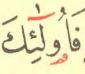 فَأُولَٰئِكَ